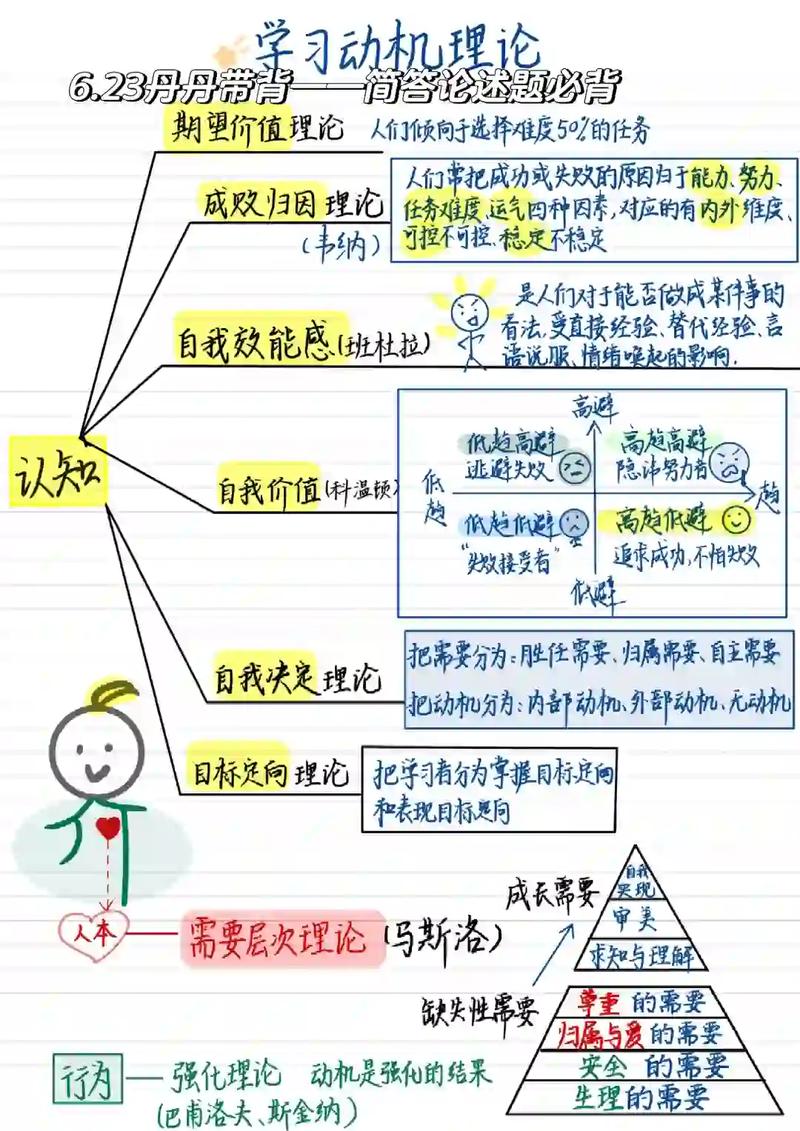 学习动机理论
6.23丹丹带背——简答论述题必背
期望价值理论 人们倾向于选择难度50%的任务
成败归因理论
(韦纳)
人们常把成功或失败的原因归于能力、努力、
任务难度、运气四种因素,对应的有内外维度、
可控不可控、稳定不稳定
自我效能感(班杜拉)
是人们对于能否做成某件事的
看法,受直接经验、替代经验、言
语说服、情绪唤起的影响.
认知
自我价值(科温顿)
高避
低趋高避
逃避失败
高趋高避
隐讳努力者
低趋
趋
低趋低避
"失败接受者"
高趋低避
追求成功,不怕失败
低避
自我决定理论
把需要分为:胜任需要、归属需要、自主需要
把动机分为:内部动机、外部动机、无动机
目标定向理论
把学习者分为掌握目标定向
和表现目标定向
人本
需要层次理论(马斯洛)
成长需要
自我
实现
审美
求知与理解
缺失性需要
尊重的需要
归属与爱的需要
安全的需要
生理的需要
行为
强化理论 动机是强化的结果
(巴甫洛夫、斯金纳)